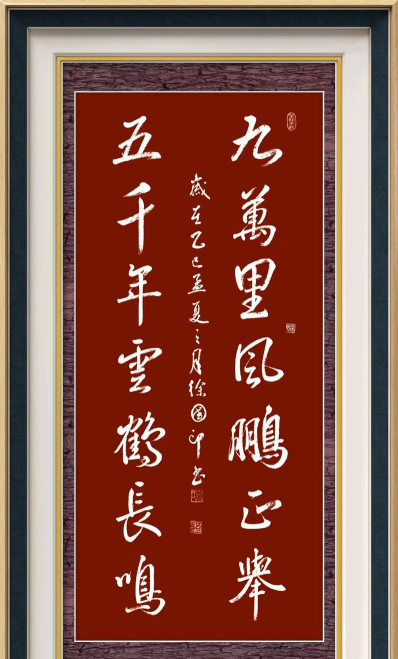 九萬里風鵬正舉
五千年雲鶴長鳴
歲在乙巳孟夏之月徐國印書